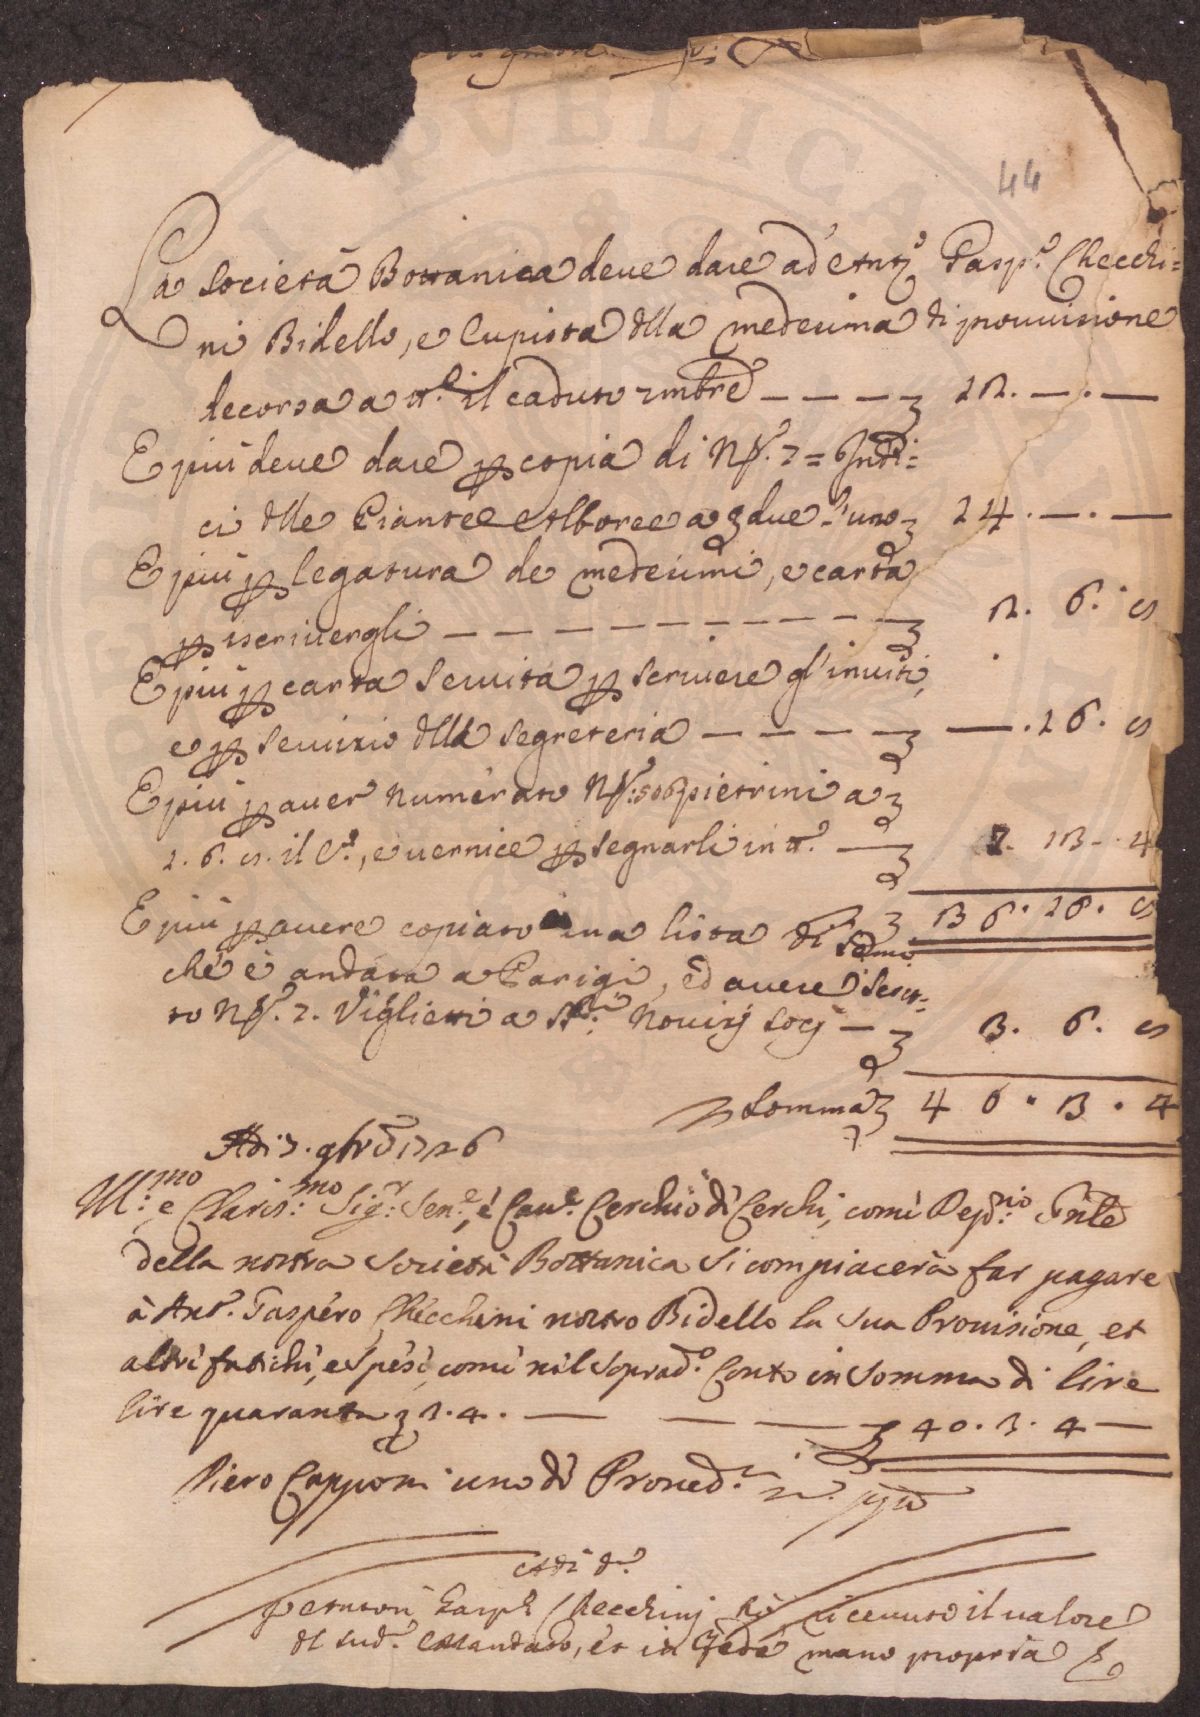 44
La Società Bottanica deve dare ad Antº Gaspº Checchi=
ni Bidello, e Cupista dlla medesima di provvisione
decorsa a ttº il caduto 7mbre — — — — 12. — . —
E più deve dare p copia di Nº. 2 = Indi=
ci dlle Piante e Alboree a due l'uno 24. — . —
E più p legatura de medesimi, e carta
p iscrivergli — — — — — — — — 2. 6. 8
E più p carta servita p scrivere gl'inviti,
e p servizio dlla Segreteria — — — — — . 16. 8
E più p aver numerato Nº: pietrini a
1. 6. 8. il Cº, e vernice p segnarli in ttº — 13. 4
36. 16. 8
E più p avere copiato una lista di Semi
che è andata a Parigi, ed avere scrit=
to Nº. 2. Viglietti a Novizj Socj — 3. 6. 8
Somma 40. 3. 4
Adi 7. 9bre 1726
Ill:mo e Claris:mo Sig:r Sen:e, e Cav:e Cerchio di Cerchi, come Dep:rio Gnle
della nostra Società Bottanica si compiacerà far pagare
à Antº. Gaspero Checchini nostro Bidello la sua Provisione, et
altri fatichi, e Spesi, comi nil Sopradº. Conto in Somma di lire
lire quaranta 3. 4. — — — — 40. 3. 4 —
Piero Capponi uno di Proved.ri
Adi dº
Io Antonio Gasp Checchinj hò ricevuto il valore
dl sudº. Mandato, et in fede mano propria